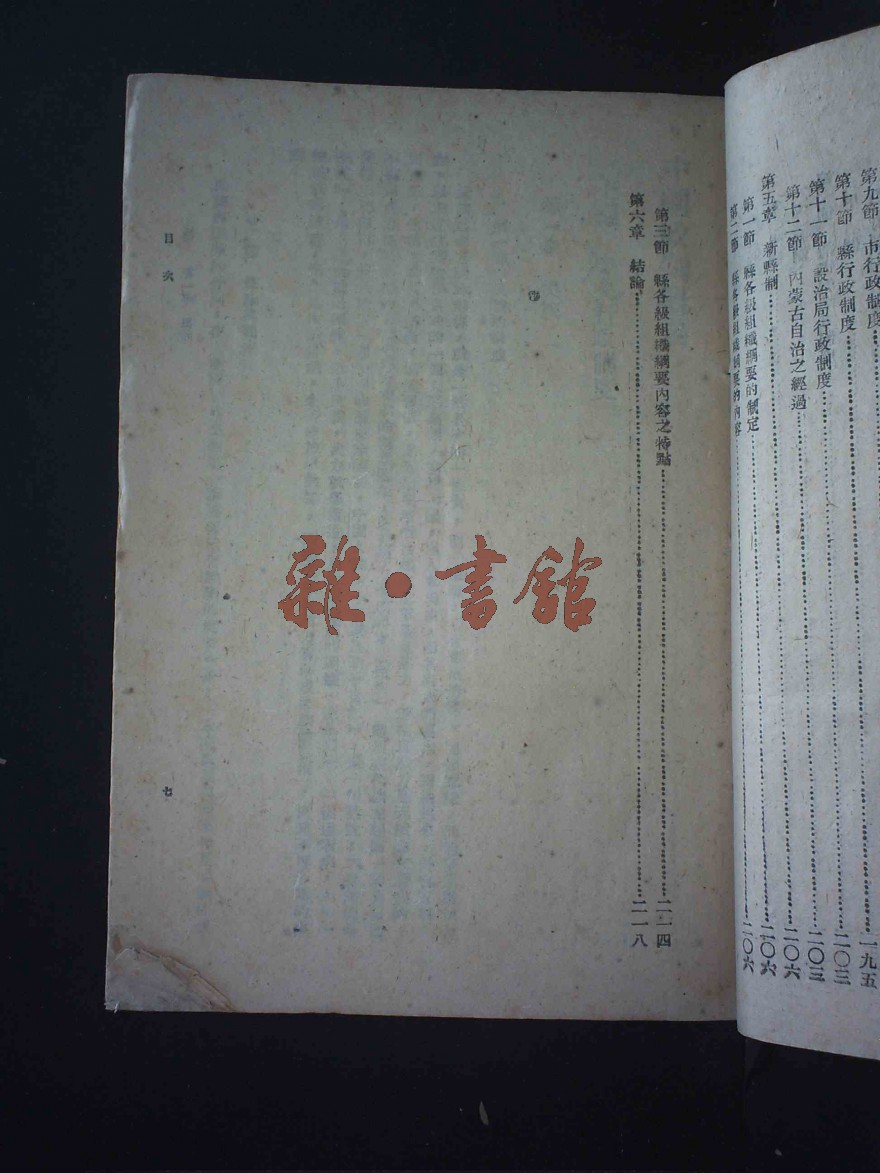 第九節　市行政制度……一九五
第十節　縣行政制度……二〇三
第十一節　設治局行政制度……二〇三
第十二節　內蒙古自治之經過……二〇六
第五章　新縣制……二〇六
第一節　縣各級組織綱要的制定……二〇六
第二節　縣各級組織綱要的內容
第三節　縣各級組織綱要內容之特點……二一四
第六章　結論……二一八
目次
七
雜·書舘